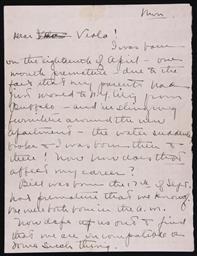 Mon
Dear Viola!
I was born
on the eighteenth of April - one
month premature - due to the
fact that my parents had
just moved to N.Y. City from
Buffalo - and in slinging
furniture around the new
apartment - the water suddenly
broke & I was born then &
there! Now how does that
affect my career?
Bill was born the 17th of Sept.
not premature that we know
We were both born in the a.m.
Now dope us out & find
that we are incompatible or
some such thing.